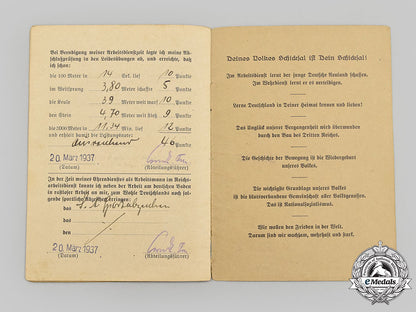 Bei Beendigung meiner Arbeitsdienstzeit legte ich meine Abschlußprüfung in den Leibesübungen ab, und erreichte, daß ich
die 100 Meter in 14 Sek. lief 10 Punkte
im Weitsprung 3,80 Meter schaffte 5 Punkte
die Keule 39 Meter warf 10 Punkte
den Stein 4,70 Meter stieß 9 Punkte
die 3000 Meter in 11,24 Min. lief 12 Punkte
und erhielt damit die Leistungsnote:
ausreichend 40 Punkte
20. März 1937
(Datum) (Abteilungsführer)
In der Zeit meines Ehrendienstes als Arbeitsmann im Reichsarbeitsdienst
das S.A. Sportabzeichen
das
den
20. März 1937
(Datum) (Abteilungsführer)
Deines Volkes Schicksal ist Dein Schicksal!
Im Arbeitsdienst lernt der junge Deutsche Neuland schaffen.
Im Wehrdienst lernt er es verteidigen.
Lerne Deutschland in Deiner Heimat kennen und lieben!
Das Unglück unserer Vergangenheit wird überwunden
durch den Bau des Dritten Reiches.
Die Geschichte der Bewegung ist die Wiedergeburt
unseres Volkes.
Die wichtigste Grundlage unseres Volkes
ist die blutverbundene Gemeinschaft aller Volksgenossen.
Das ist Nationalsozialismus.
Wir wollen den Frieden in der Welt.
Darum sind wir wachsam, wehrhaft und stark.